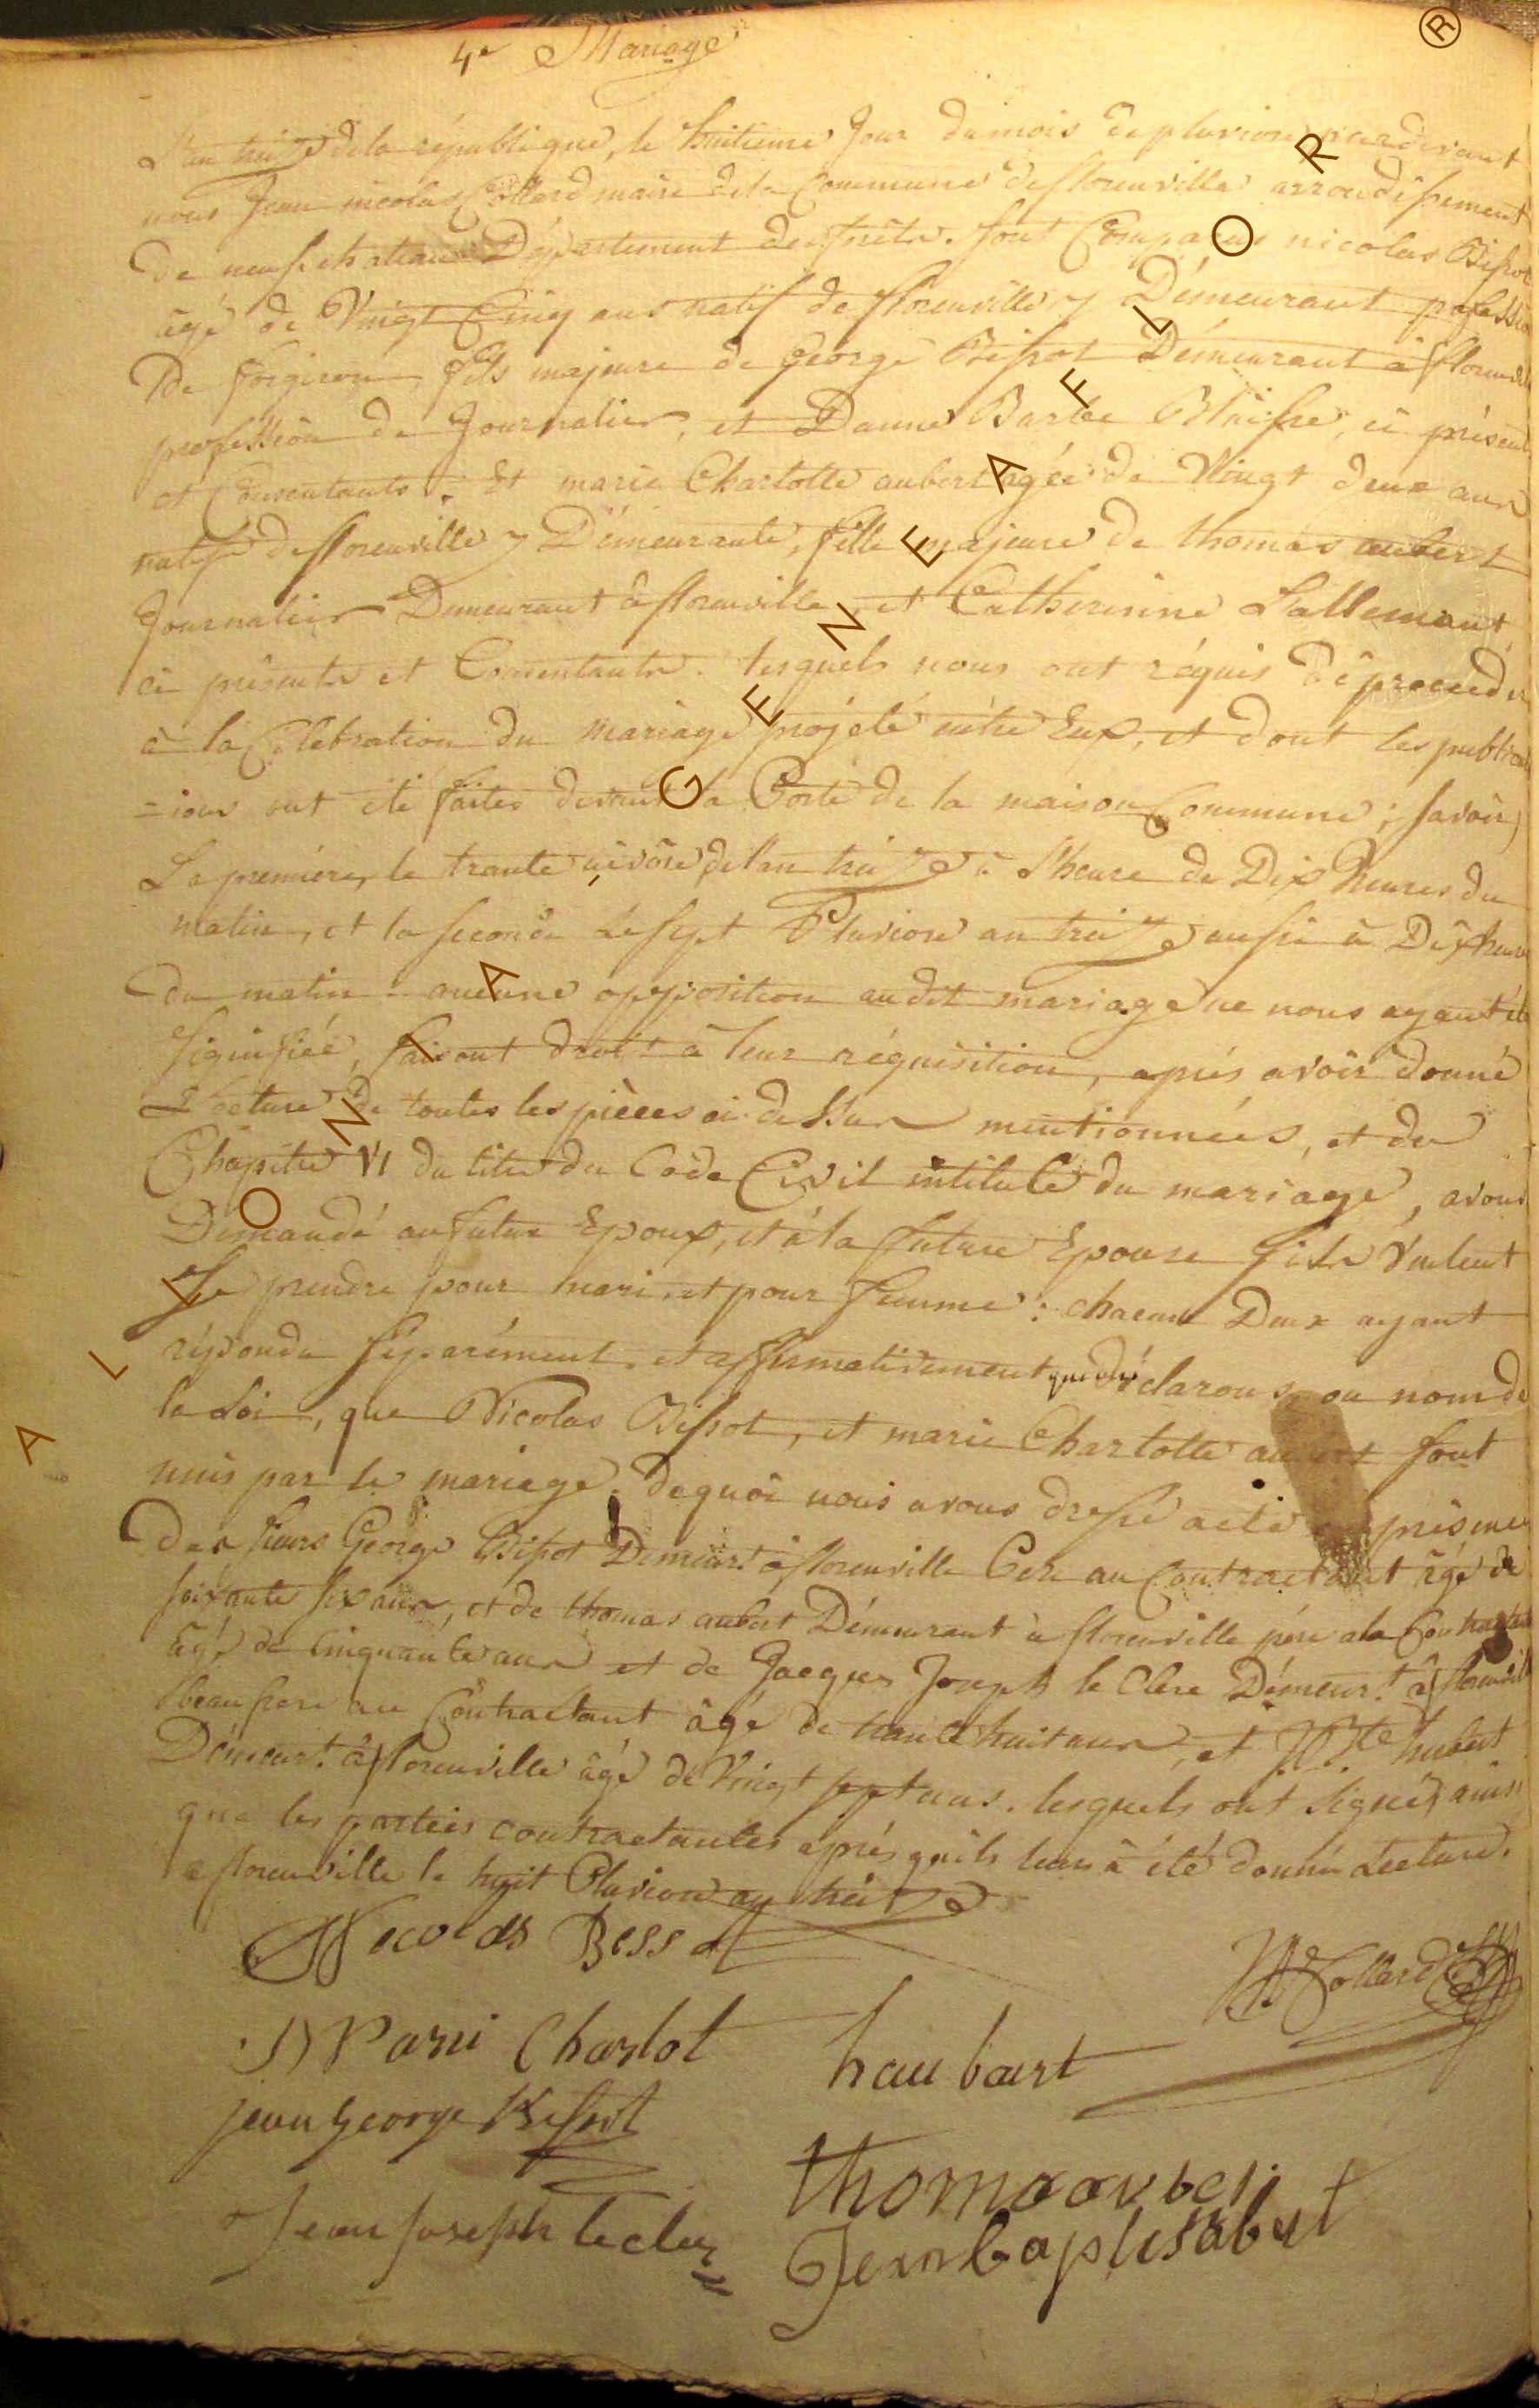 4e Mariage
L'an treize de la république, le huitieme Jour dumois de pluviose pardevant
nous Jean nicolas Collard maire dela Commune de florenville arrondissement
De neufchateau Département des forêts. sont Comparus nicolas Bissot
âgé de Vingt Cinq ans natif de florenville y Démeurant profession
De forgeron, fils majeure de George Bissot Démeurant à florenville
proféssion de Journalier, et Danne Barbe Blaisse, ci présents
et Consentants. Et marie Charlotte aubert agée de Vingt deux ans
natif de florenville y Démeurante, fille majeure de thomas aubert
Journalier Demeurant à florenville, et Catherinne Lallemant
ci présents et Consentants. lesquels nous ont réquis De procéder
à la Célébration du mariage projeté entre Eux, et dont les publicat
=ions ont été faites devant la Porte de la maison Commune; savoir,
La premiére, le trante nivôse de l'an treize à l'heure de Dix heures du
matin, et la seconde Le sept Pluviose an treize aussi à Dix heures
du matin. aucune opposition audit mariage ne nous ayant été
signifiée, faisont droit à leur réquisition, aprés avoir donné
Lecture de toutes les pièces ci-dessus mentionnées, et du
Chapitre VI du titre du Code Civil intitulé du mariage, avons
Démandé au futur Epoux, et à la future Epouse s'ils veulent
Se prendre pour mari, et pour femme: chacun Deux ayant
répondu séparément, et affirmativement, déclarons, au nom de
la Loi, que Nicolas Bissot, et marie Charlotte aubert sont
unis par le mariage. De quoi nous avons dressé acte en présence
Des sieurs George Bissot Démeurt. à florenville Pere au Contractant âgé de
soixante six ans, et de thomas aubert Démeurant à florenville pére a la Contractante
âgé de Cinquante ans et de Jacques Joseph le Clere Démeurt. à florenville
beau frere au Contractant âgé de trante huit ans, et J. Bte. hubert
Démeurt. à florenville âgé de Vingt sept ans. lesquels ont Signés, ainsi
que les parties contractantes aprés qu'ils leurs à été donnée Lecture.
a florenville le huit Pluviose an treize
Necolas Bessot
JN Collard
Marii Charlot haubart
jean george Bissot
thoma ouber
Jean Joseph lecler
Jean baptis abert
ALLONIA GENEAFLOR ®